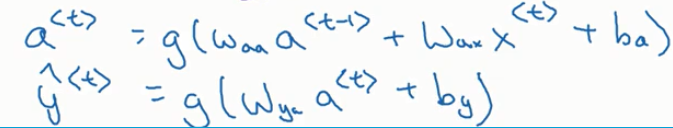 a^{<t>} = g(W_{aa} a^{<t-1>} + W_{ax} x^{<t>} + b_a)
ŷ^{<t>} = g(W_{ya} a^{<t>} + b_y)